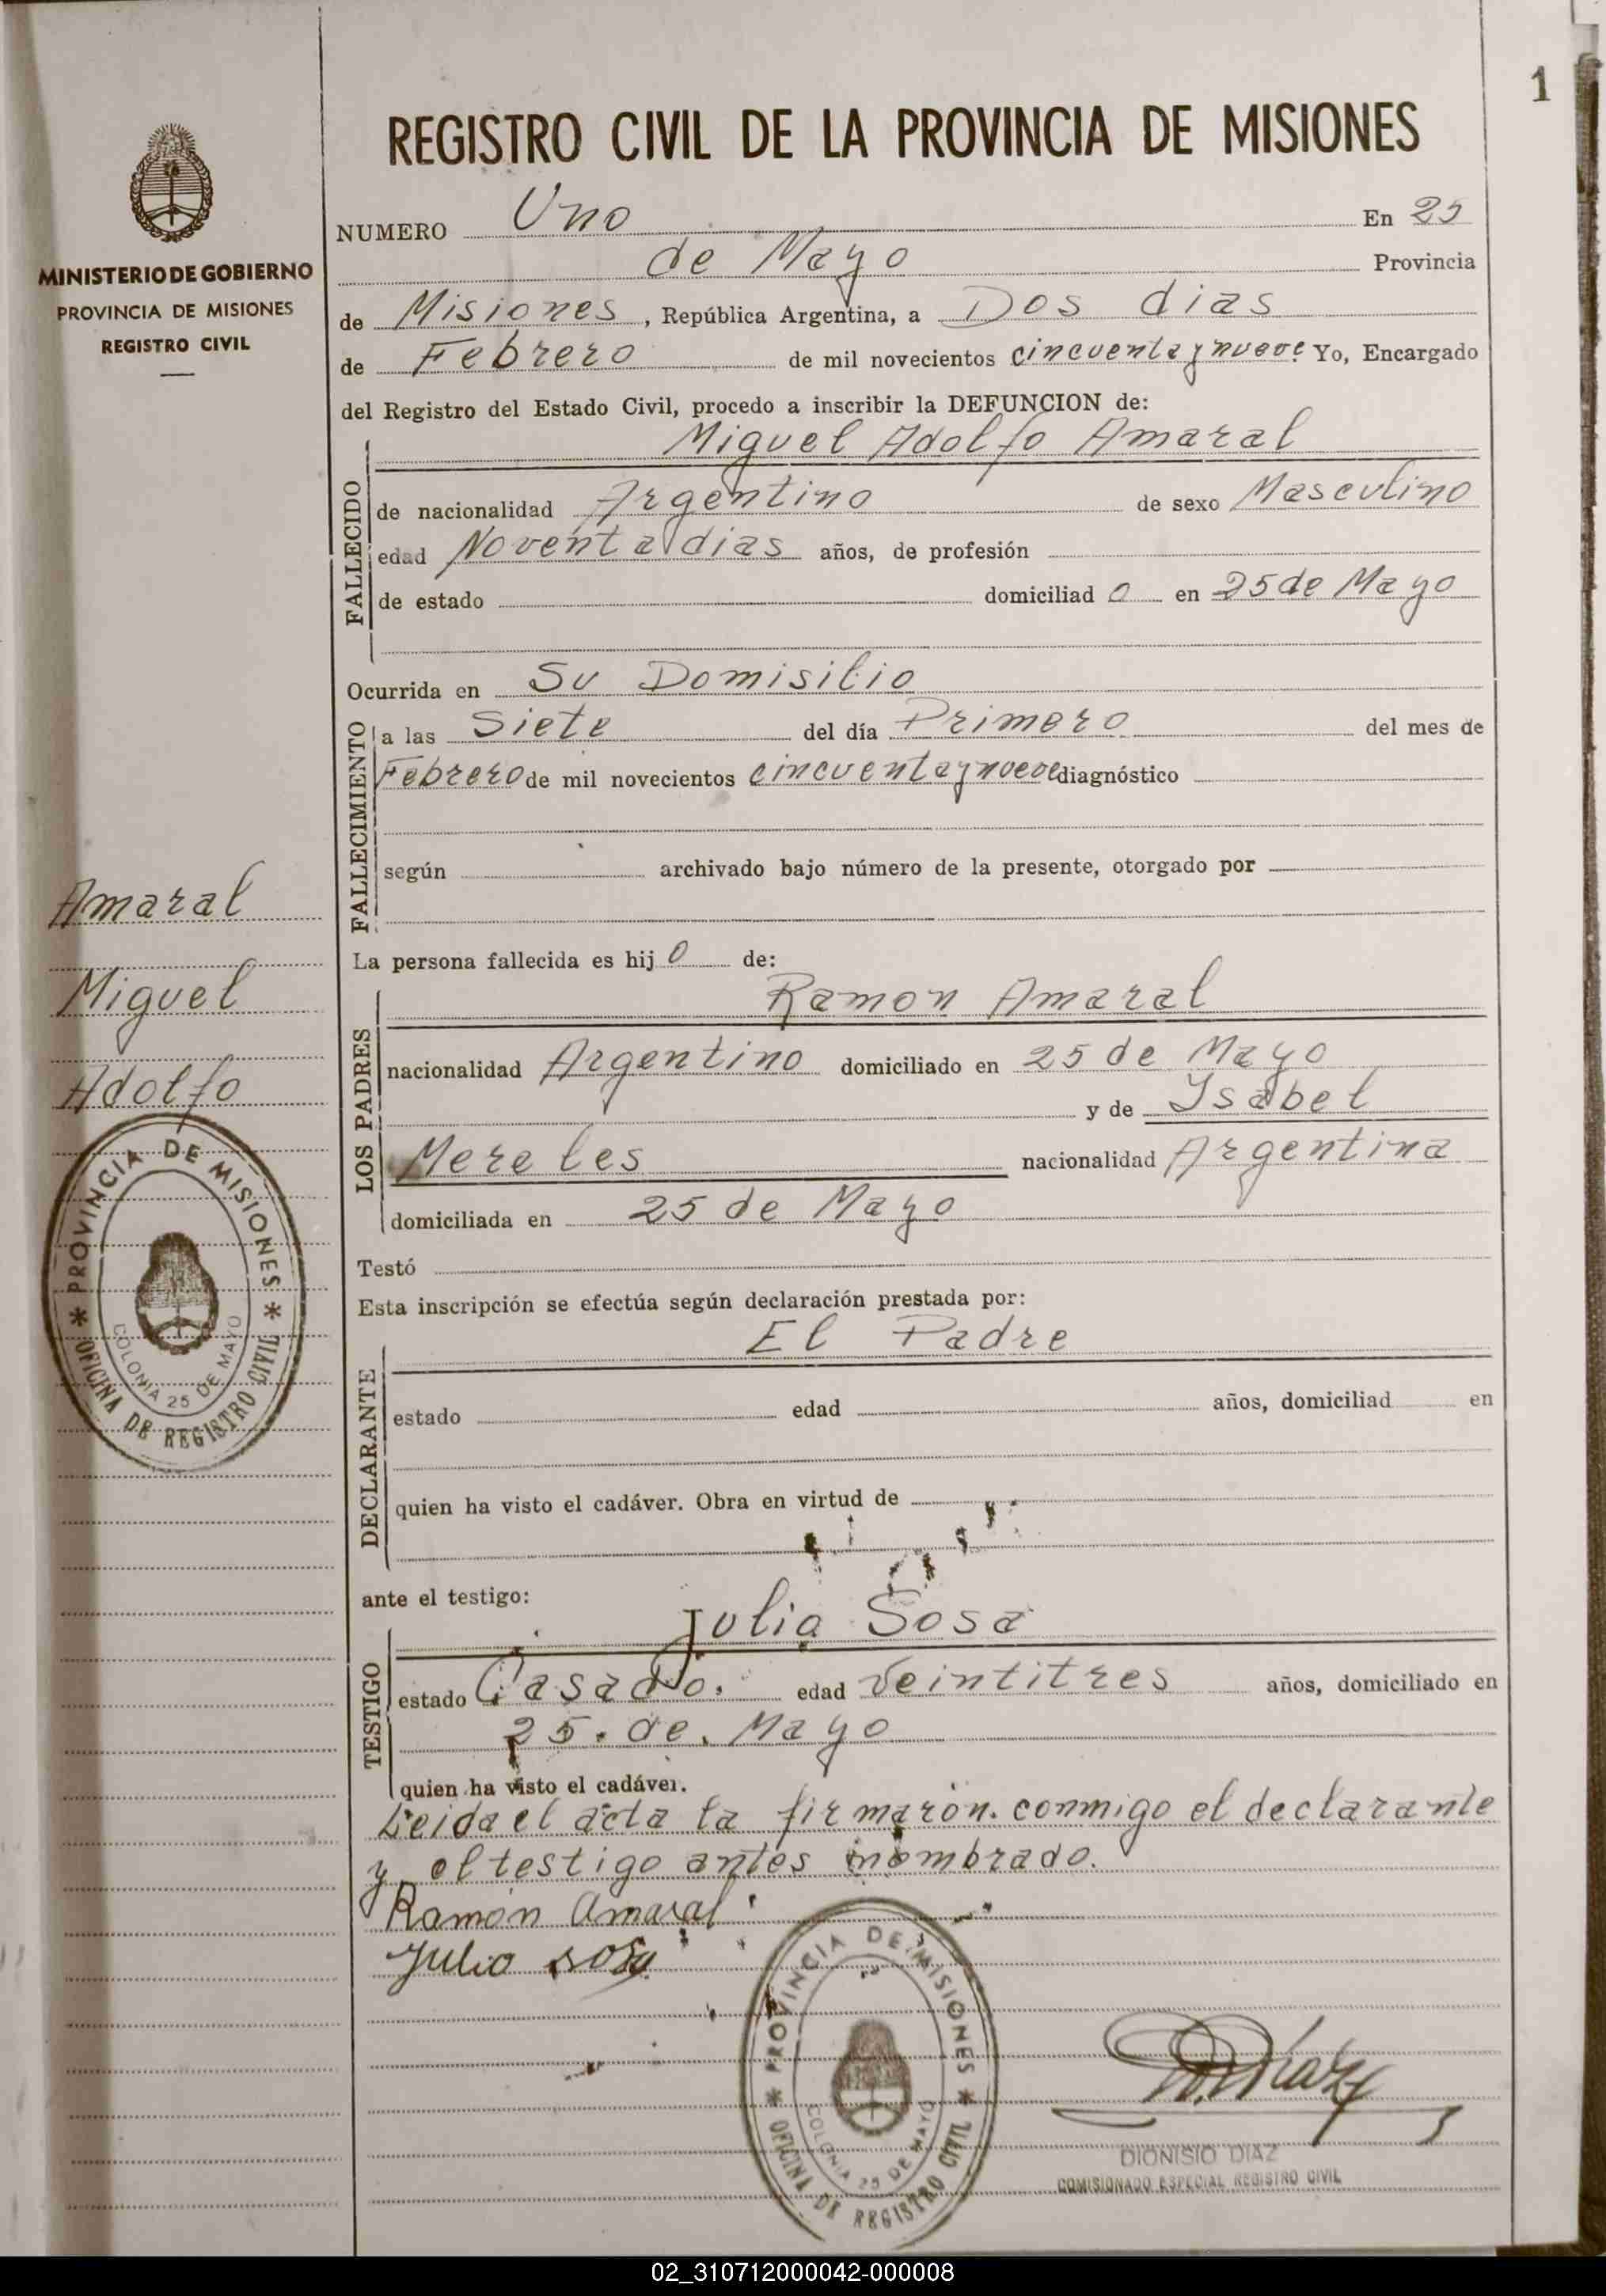 1
REGISTRO CIVIL DE LA PROVINCIA DE MISIONES
MINISTERIO DE GOBIERNO
PROVINCIA DE MISIONES
REGISTRO CIVIL
NUMERO Uno En 25
de Mayo Provincia
de Misiones, República Argentina, a Dos dias
de Febrero de mil novecientos cincuenta y nueve Yo, Encargado
del Registro del Estado Civil, procedo a inscribir la DEFUNCION de:
FALLECIDO
Miguel Adolfo Amaral
de nacionalidad Argentino de sexo Masculino
edad Noventa dias años, de profesión
de estado domiciliad o en 25 de Mayo
Ocurrida en Su Domisilio
FALLECIMIENTO
a las Siete del día Primero del mes de
Febrero de mil novecientos cincuenta y nueve diagnóstico
según archivado bajo número de la presente, otorgado por
Amaral
Miguel
Adolfo
La persona fallecida es hij o de:
LOS PADRES
Ramon Amaral
nacionalidad Argentino domiciliado en 25 de Mayo
y de Ysabel
Mereles nacionalidad Argentina
domiciliada en 25 de Mayo
PROVINCIA DE MISIONES
COLONIA 25 DE MAYO
OFICINA DE REGISTRO CIVIL
Testó
Esta inscripción se efectúa según declaración prestada por:
DECLARANTE
El Padre
estado edad años, domiciliad en
quien ha visto el cadáver. Obra en virtud de
ante el testigo:
TESTIGO
Julio Sosa
estado Casado. edad Veintitres años, domiciliado en
25. de. Mayo
quien ha visto el cadáver.
Leida el acta la firmarón. conmigo el declarante
y el testigo antes nombrado.
Ramon Amaral
Julio sosa
PROVINCIA DE MISIONES
COLONIA 25 DE MAYO
OFICINA DE REGISTRO CIVIL
DIONISIO DIAZ
COMISIONADO ESPECIAL REGISTRO CIVIL
02_310712000042-000008